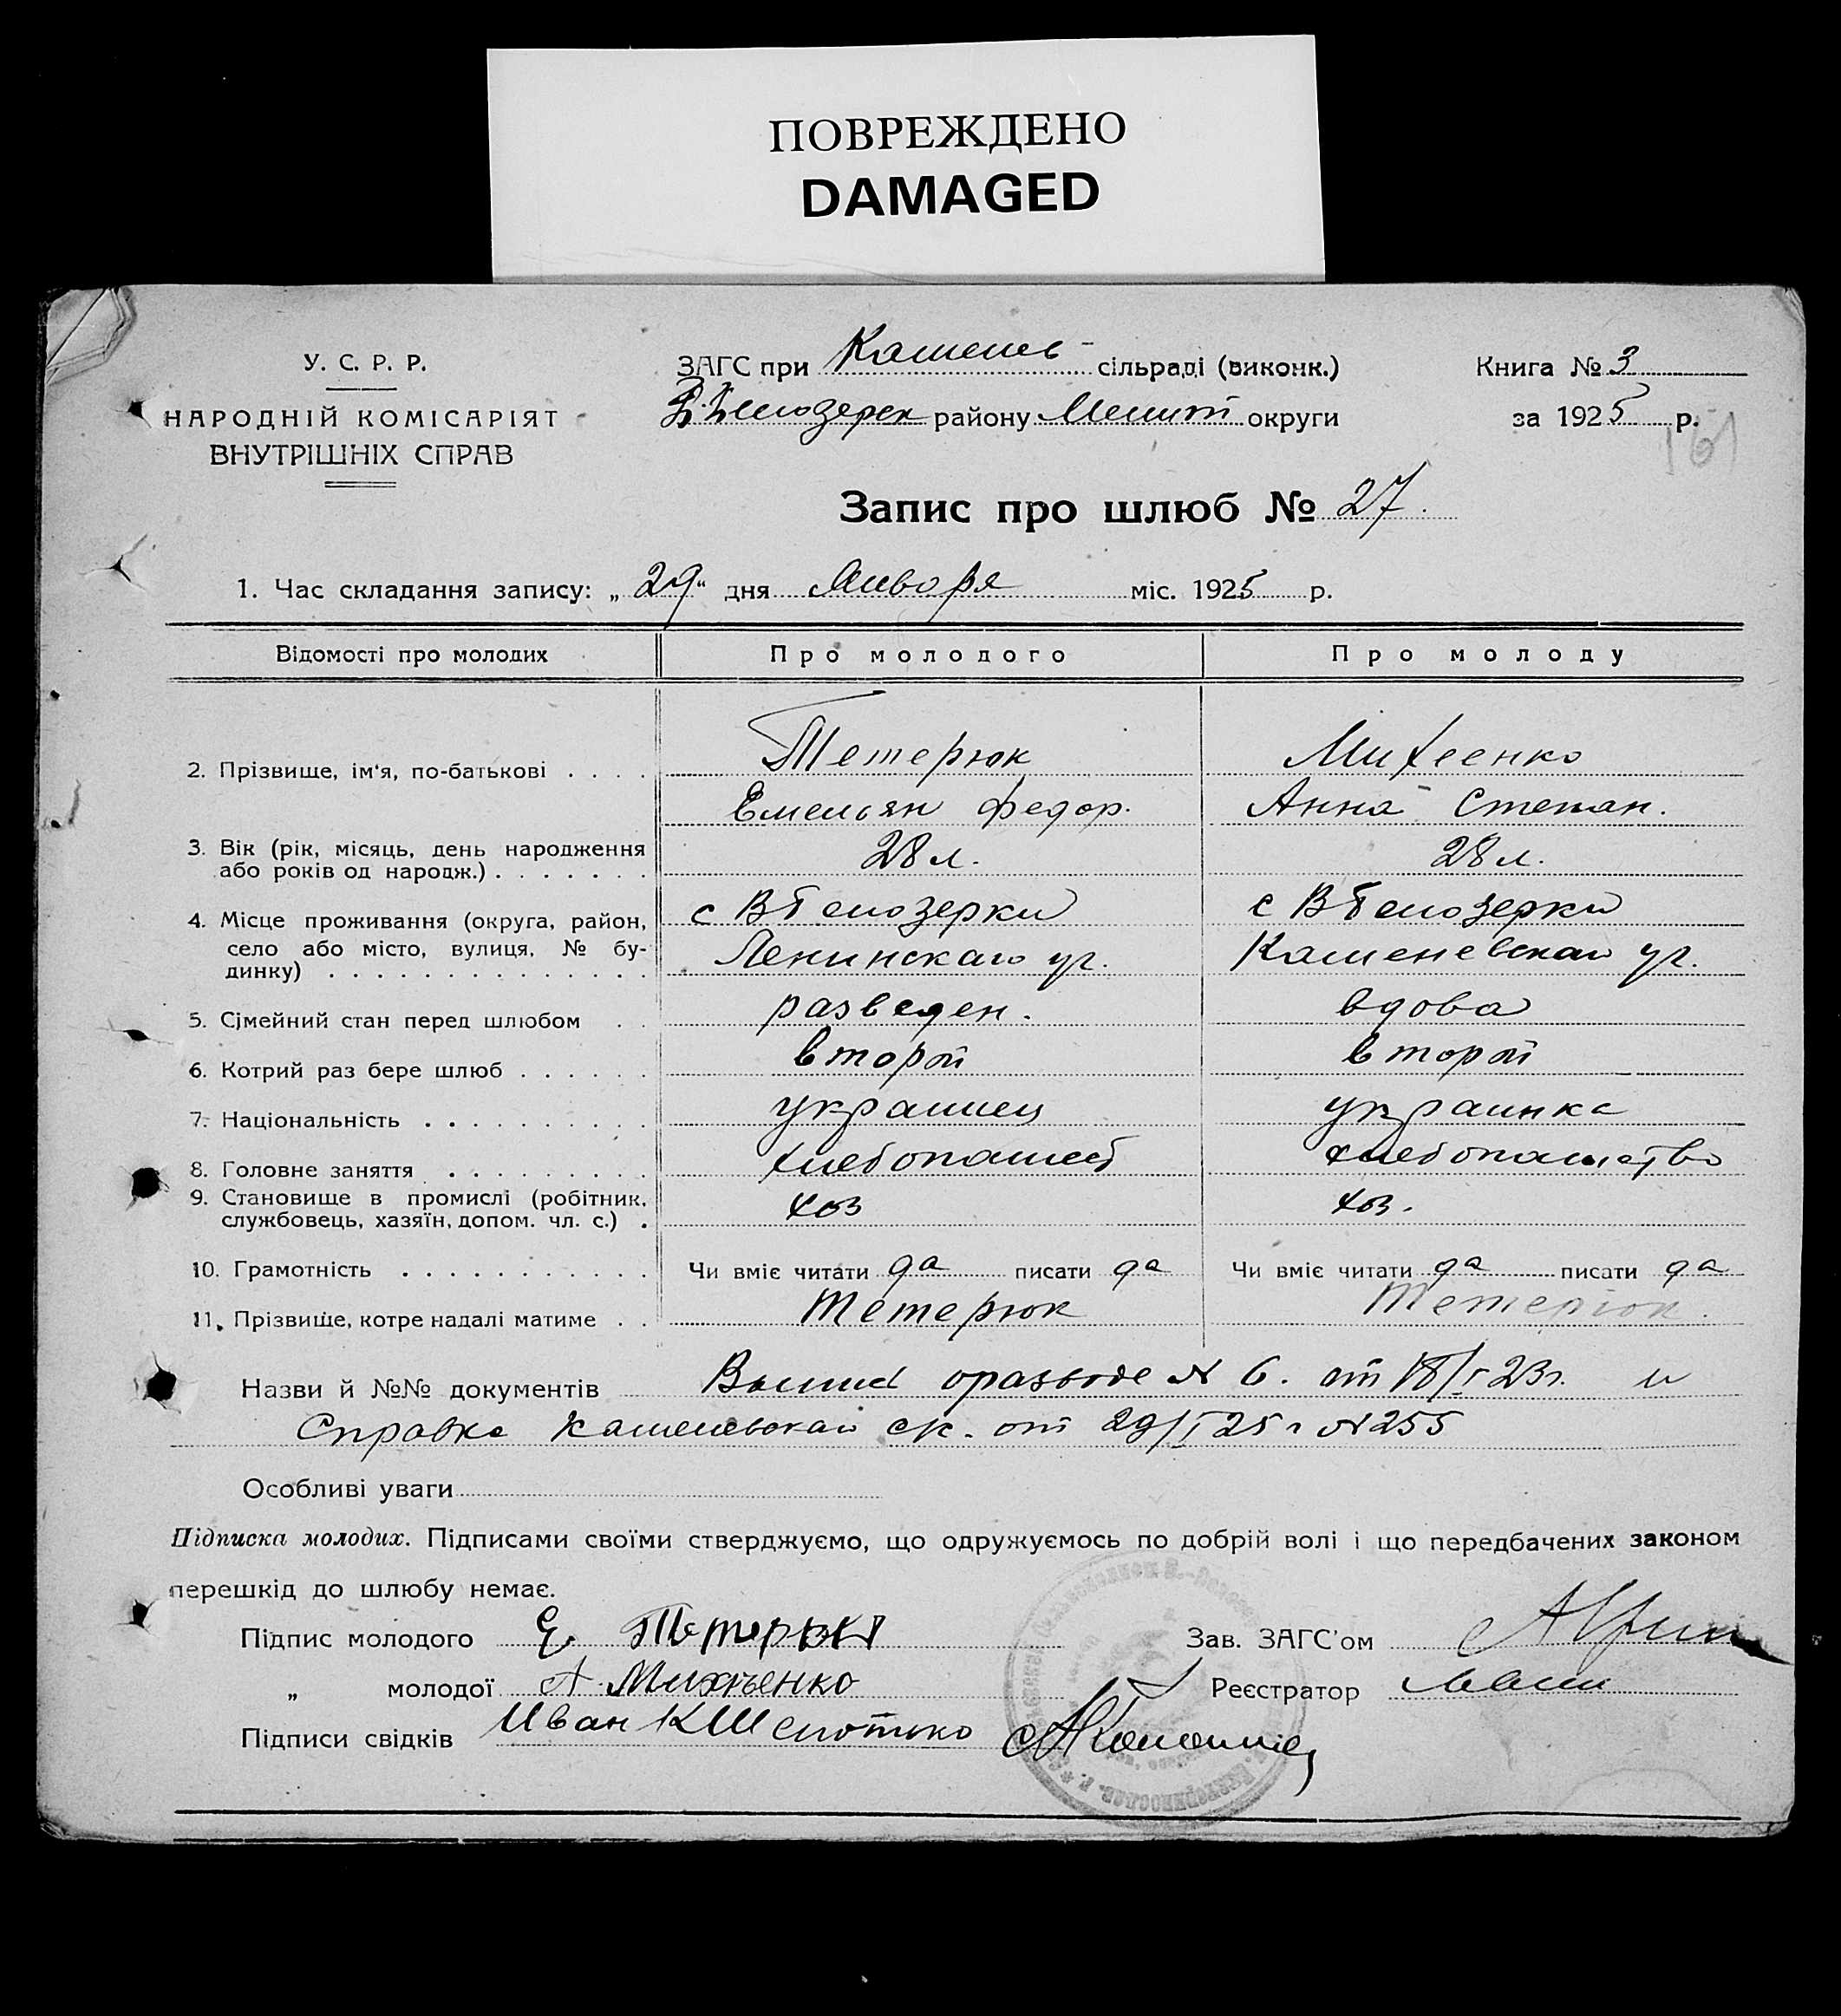 ПОВРЕЖДЕНО
DAMAGED
У. С. Р. Р.
НАРОДНІЙ КОМІСАРІЯТ
ВНУТРІШНІХ СПРАВ
ЗАГС при Каменев- сільраді (виконк.)
В. Белозерск району Мелит округи
Книга № 3
за 1925 р.
161
Запис про шлюб № 27.
1. Час складання запису: „ 29 “ дня Января міс. 1925 р.
Відомості про молодих Про молодого Про молоду
2. Прізвище, ім‘я, по-батькові . . . . Тетерюк Михеенко
Емельян Федор. Анна Степан.
3. Вік (рік, місяць, день народження
або років од народж.) . . . . . . . 28 л. 28 л.
4. Місце проживання (округа, район, с В Белозерки с В Белозерки
село або місто, вулиця, № бу-
динку) . . . . . . . . . . . . . . Ленинскаго уг. Каменевскаго уг.
5. Сімейний стан перед шлюбом . . разведен. вдова
6. Котрий раз бере шлюб . . . . . . второй второй
7. Національність . . . . . . . . . . украинец украинка
8. Головне заняття . . . . . . . . . хлебопашест хлебопашество
9. Становище в промислі (робітник,
службовець, хазяїн, допом. чл. с.) . хоз хоз.
10. Грамотність . . . . . . . . . . . Чи вміє читати да писати да Чи вміє читати да писати да
11. Прізвище, котре надалі матиме . . Тетерюк Тетерюк.
Назви й №№ документів Выпись о разводе № 6. от 18/I 23 г. и
Справка Каменевской с/к. от 29/I 25 г № 255
Особливі уваги
Підписка молодих. Підписами своїми стверджуємо, що одружуємось по добрій волі і що передбачених законом
перешкід до шлюбу немає.
Підпис молодого Е. Тетерюк Зав. ЗАГС’ом
„ молодої А Михѣенко Реєстратор
Підписи свідків Иван К